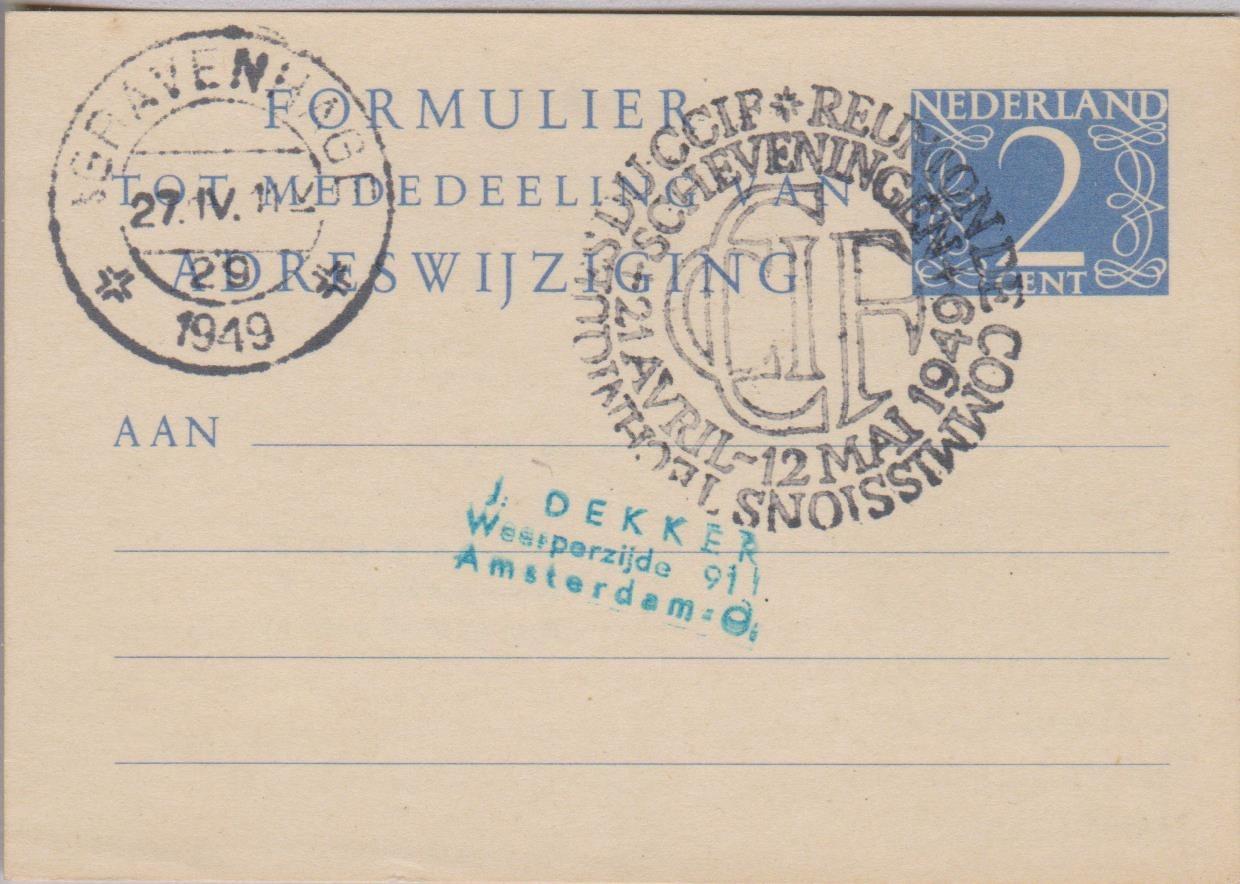 FORMULIER
TOT MEDEDEELING VAN
ADRESWIJZIGING
NEDERLAND
2
CENT
'SGRAVENHAGE
27.IV.
29
1949
REUNION DE COMMISSIONS TECHNIQUES DU CCIF
SCHEVENINGEN
21 AVRIL-12 MAI 1949
CCIF
AAN
J. DEKKER
Weesperzijde 91
Amsterdam-O.